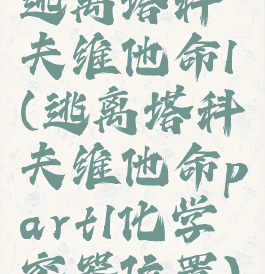 逃离塔科
夫维他命l
(逃离塔科
夫维他命p
artl化学
容器位置)